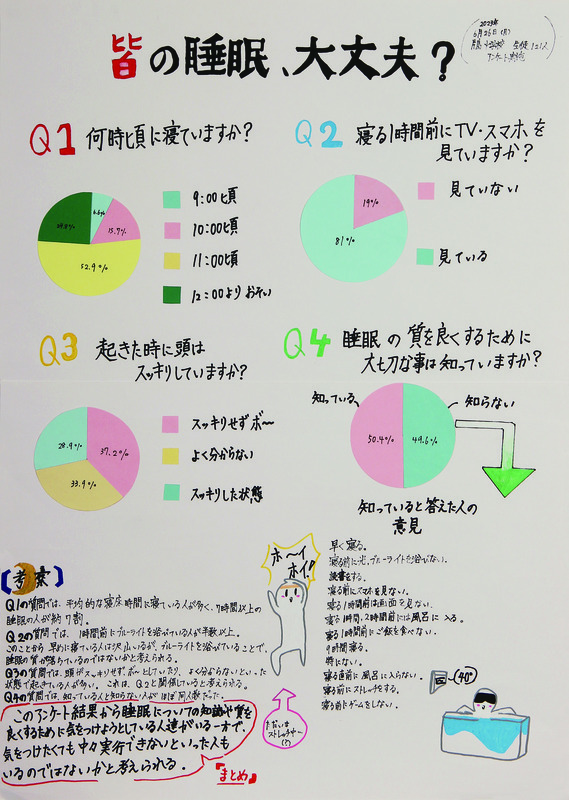 皆の睡眠、大丈夫？
2023年
6月26日(月)
生徒121人
Q1 何時頃に寝ていますか？
6.6%
15.7%
52.9%
9:00頃
10:00頃
11:00頃
12:00よりおそい
Q2 寝る1時間前にTV・スマホを
見ていますか？
19%
81%
見ていない
見ている
Q3 起きた時に頭は
スッキリしていますか？
28.9%
37.2%
33.9%
スッキリせずボ〜
よく分からない
スッキリした状態
Q4 睡眠の質を良くするために
大切な事は知っていますか？
知っている
知らない
50.4%
49.6%
知っていると答えた人の
意見
早く寝る。
寝る前に光、ブルーライトを浴びない。
読書をする。
寝る前にスマホを見ない。
寝る1時間前は画面を見ない。
寝る1時間・2時間前には風呂に入る。
寝る1時間前にご飯を食べない。
9時間寝る。
特にない。
寝る直前に風呂に入らない。
寝る前にストレッチをする。
寝る前にゲームをしない。
ホ〜イ
ホイ!
40°
ただいま
ストレッチ中〜
(?)
【考察】
Q1の質問では、平均的な寝床時間に寝ている人が多く、7時間以上の
睡眠の人が約7割。
Q2の質問では、1時間前にブルーライトを浴びている人が半数以上。
このことから早めに寝ている人は沢山いるが、ブルーライトを浴びていることで、
睡眠の質が落ちているのではないかと考えられる。
Q3の質問では、頭がスッキリせずボーとしていたり、よく分からないといった
状態で起きている人が多い。これは、Q2と関係していると考えられる。
Q4の質問では、知っている人と知らない人がほぼ同人数だった。
このアンケート結果から睡眠についての知識や質を
良くするために気をつけようとしている人達がいる一方で、
気をつけたくても中々実行できないといった人も
いるのではないかと考えられる。
『まとめ』